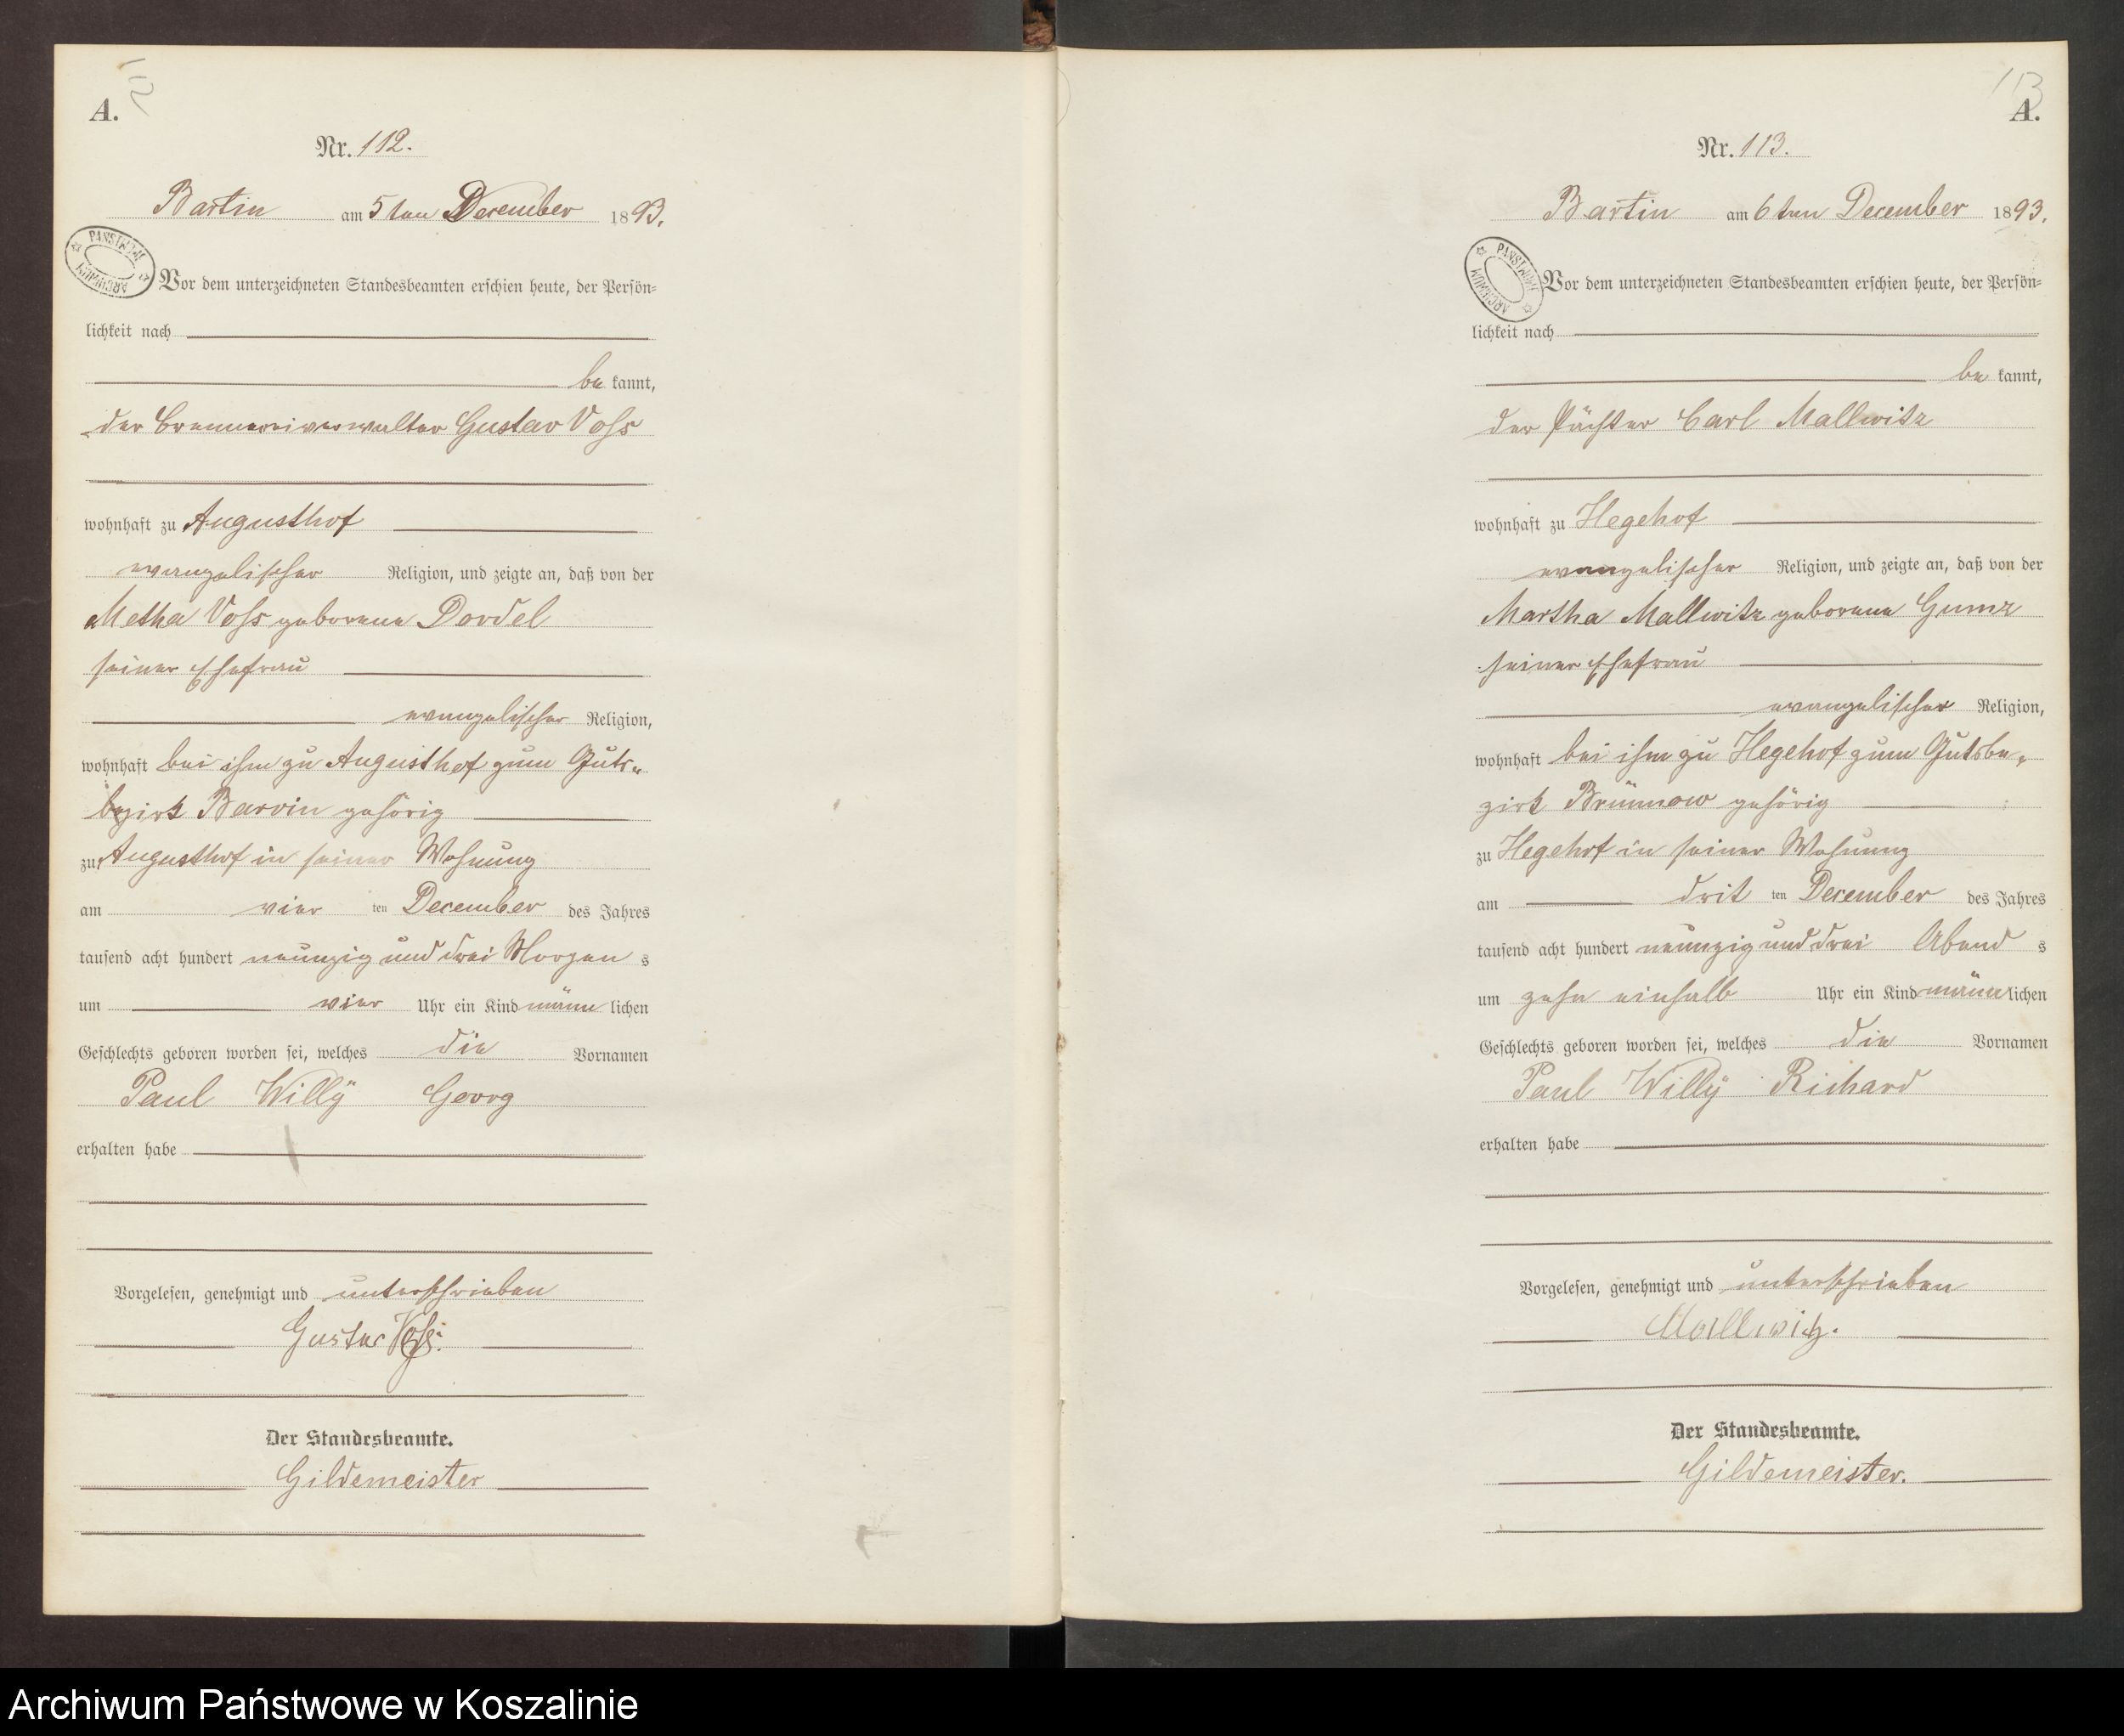 A.
Nr. 112.
Bartin am 5ten December 1893.
PANSTWOWE ARCHIWUM
Vor dem unterzeichneten Standesbeamten erschien heute, der Persön=
lichkeit nach
be kannt,
der Brennereiverwalter Gustav Voß
wohnhaft zu Augusthof
evangelischer Religion, und zeigte an, daß von der
Metha Voß geborene Dordel
seiner Ehefrau
evangelischer Religion,
wohnhaft bei ihm zu Augusthof zum Guts-
bezirk Barvin gehörig
zu Augusthof in seiner Wohnung
am vier ten December des Jahres
tausend acht hundert neunzig und drei Morgen s
um vier Uhr ein Kind männ lichen
Geschlechts geboren worden sei, welches die Vornamen
Paul Willÿ Georg
erhalten habe
Vorgelesen, genehmigt und unterschrieben
Gustav Voß.
Der Standesbeamte.
Gildemeister
113
A.
Nr. 113.
Bartin am 6ten December 1893.
PANSTWOWE ARCHIWUM
Vor dem unterzeichneten Standesbeamten erschien heute, der Persön=
lichkeit nach
be kannt,
der Pächter Carl Mallwitz
wohnhaft zu Hegehof
evangelischer Religion, und zeigte an, daß von der
Martha Mallwitz geborene Gumz
seiner Ehefrau
evangelischer Religion,
wohnhaft bei ihm zu Hegehof zum Gutsbe-
zirk Brünnow gehörig
zu Hegehof in seiner Wohnung
am drit ten December des Jahres
tausend acht hundert neunzig und drei Abend s
um zehn einhalb Uhr ein Kind männ lichen
Geschlechts geboren worden sei, welches die Vornamen
Paul Willÿ Richard
erhalten habe
Vorgelesen, genehmigt und unterschrieben
Mallwitz.
Der Standesbeamte.
Gildemeister.
Archiwum Państwowe w Koszalinie